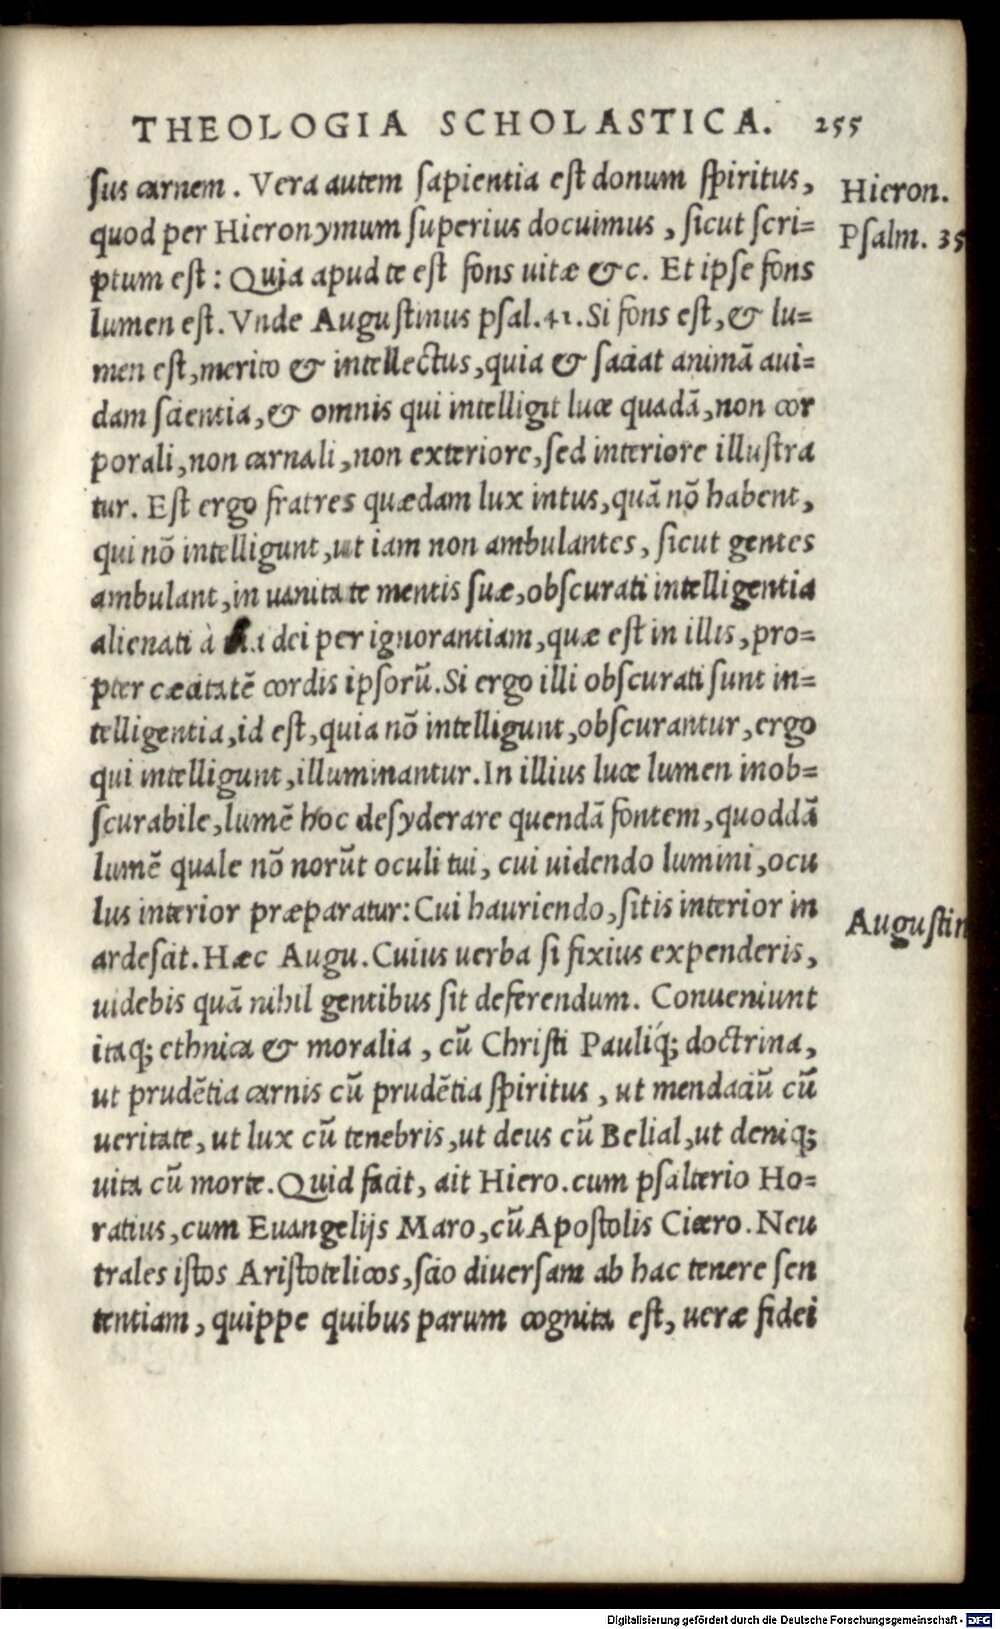 THEOLOGIA SCHOLASTICA. 255
ſus carnem. Vera autem ſapientia eſt donum ſpiritus,
Hieron.
quod per Hieronymum ſuperius docuimus, ſicut ſcri=
Pſalm. 35
ptum eſt: Quia apud te eſt fons uitæ &c. Et ipſe fons
lumen eſt. Vnde Auguſtinus pſal. 41. Si fons eſt, & lu=
men eſt, merito & intellectus, quia & ſaciat animā aui=
dam ſcientia, & omnis qui intelligit luce quadā, non cor
porali, non carnali, non exteriore, ſed interiore illuſtra
tur. Eſt ergo fratres quædam lux intus, quā nō habent,
qui nō intelligunt, ut iam non ambulantes, ſicut gentes
ambulant, in uanitate mentis ſuæ, obſcurati intelligentia
alienati à dei per ignorantiam, quæ eſt in illis, pro=
pter cæcitatē cordis ipſorū. Si ergo illi obſcurati ſunt in=
telligentia, id eſt, quia nō intelligunt, obſcurantur, ergo
qui intelligunt, illuminantur. In illius luce lumen inob=
ſcurabile, lumē hoc deſyderare quendā fontem, quoddā
lumē quale nō norūt oculi tui, cui uidendo lumini, ocu
lus interior præparatur: Cui hauriendo, ſitis interior in
Auguſtin
ardeſcit. Hæc Augu. Cuius uerba ſi fixius expenderis,
uidebis quā nihil gentibus ſit deferendum. Conueniunt
itaq; ethnica & moralia, cū Chriſti Pauliq́; doctrina,
ut prudētia carnis cū prudētia ſpiritus, ut mendaciū cū
ueritate, ut lux cū tenebris, ut deus cū Belial, ut deniq;
uita cū morte. Quid facit, ait Hiero. cum pſalterio Ho=
ratius, cum Euangelijs Maro, cū Apoſtolis Cicero. Neu
trales iſtos Ariſtotelicos, ſcio diuerſam ab hac tenere ſen
tentiam, quippe quibus parum cognita eſt, ueræ fidei
Digitalisierung gefördert durch die Deutsche Forschungsgemeinschaft - DFG